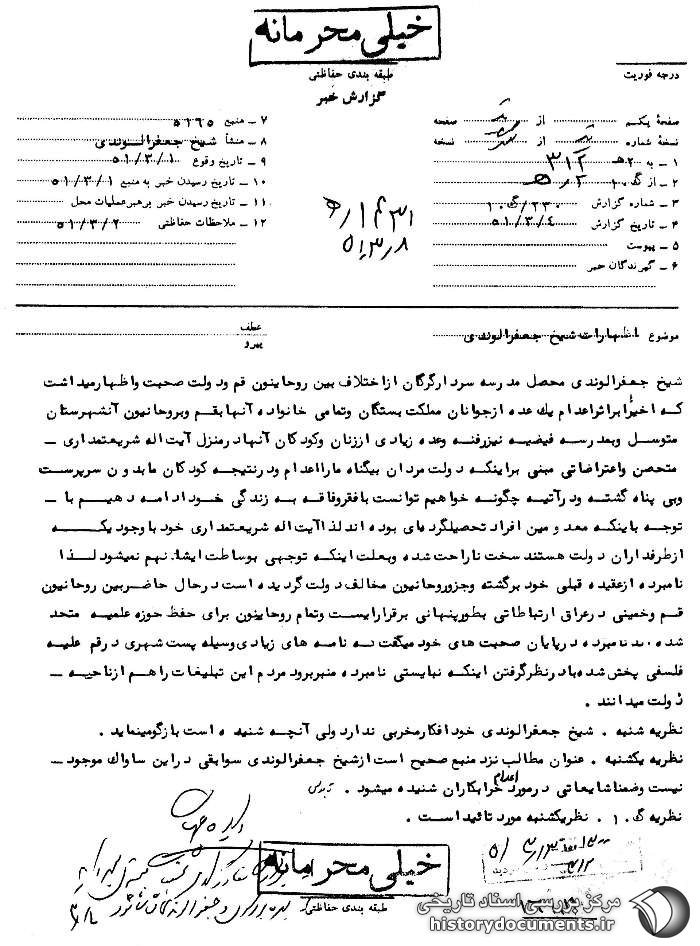 خیلی محرمانه
طبقه بندی حفاظتی
گزارش خبر
درجه فوریت
صفحه یکم از صفحه
نسخه شماره از نسخه
۱ ـ به ۲۰هـ ۳۱۲
۲ ـ از گ۱۰
۳ ـ شماره گزارش ۲۳۰/گ۱۰
۴ ـ تاریخ گزارش ۵۱/۳/۴
۵ ـ پیوست
۶ ـ گیرندگان خبر
۷ ـ منبع ۵۱۶۵
۸ ـ منشأ شیخ جعفرالوندی
۹ ـ تاریخ وقوع ۵۱/۳/۱
۱۰ ـ تاریخ رسیدن خبر به منبع ۵۱/۳/۱
۱۱ ـ تاریخ رسیدن خبر برهبرعملیات محل
۱۲ ـ ملاحظات حفاظتی ۵۱/۳/۲
۵۱،۳،۸
موضوع اظهارات شیخ جعفرالوندی
عطف
پیرو
شیخ جعفرالوندی محصل مدرسه سردارگرگان ازاختلاف بین روحاینون قم ودولت صحبت واظهارمیداشت
که اخیرًا براثراعدام یك عده ازجوانان مملکت بستگان وتمامی خانواده آنهابقم وبروحانیون آنشهرستان
متوسل وبمدرسه فیضیه نیزرفته وعده زیادی اززنان وکودکان آنهادرمنزل آیت اله شریعتمداری ـ
متحصن واعتراضاتی مبنی براینکه دولت مردان بیگناه مارااعدام ودرنتیجه کودکان مابدون سرپرست
وبی پناه گشته ودرآتیه چگونه خواهیم توانست بافقروفاقه به زندگی خودادامه دهیم با ـ
توجه باینکه معدومین افراد تحصیلگرده‌ای بوده اندلذاآیت اله شریعتمداری خود باوجود یکه
ازطرفداران دولت هستند سخت ناراحت شده وبعلت اینکه توجهی بوساطت ایشانهم نمیشود لذا
نامبرده ازعقیده قبلی خود برگشته وجزوروحانیون مخالف دولت گردیده است درحال حاضربین روحانیون
قم وخمینی درعراق ارتباطاتی بطورپنهانی برقراراست وتمام روحاینون برای حفظ حوزه علمیه متحد
شده اند نامبرده درپایان صحبت های خود میگفت که نامه های زیادی وسیله پست شهری درقم علیه
فلسفی پخش شده بادرنظرگرفتن اینکه نبایستی نامبرده منبربرود مردم این تبلیغات راهم ازناحیه ـ
دولت میدانند .
نظریه شنبه . شیخ جعفرالوندی خودافکارمخربی نداردولی آنچه شنیده است بازگومینماید .
نظریه یکشنبه . عنوان مطالب نزد منبع صحیح است ازشیخ جعفرالوندی سوابقی دراین ساواك موجود ـ
نیست وضمناشایعاتی درمورد اعدام خرابکاران شنیده میشود .
نظریه گ.۱۰ نظریکشنبه مورد تائیداست .
خیلی محرمانه
طبقه بندی حفاظتی
مرکز بررسی اسناد تاریخی
historydocuments.ir